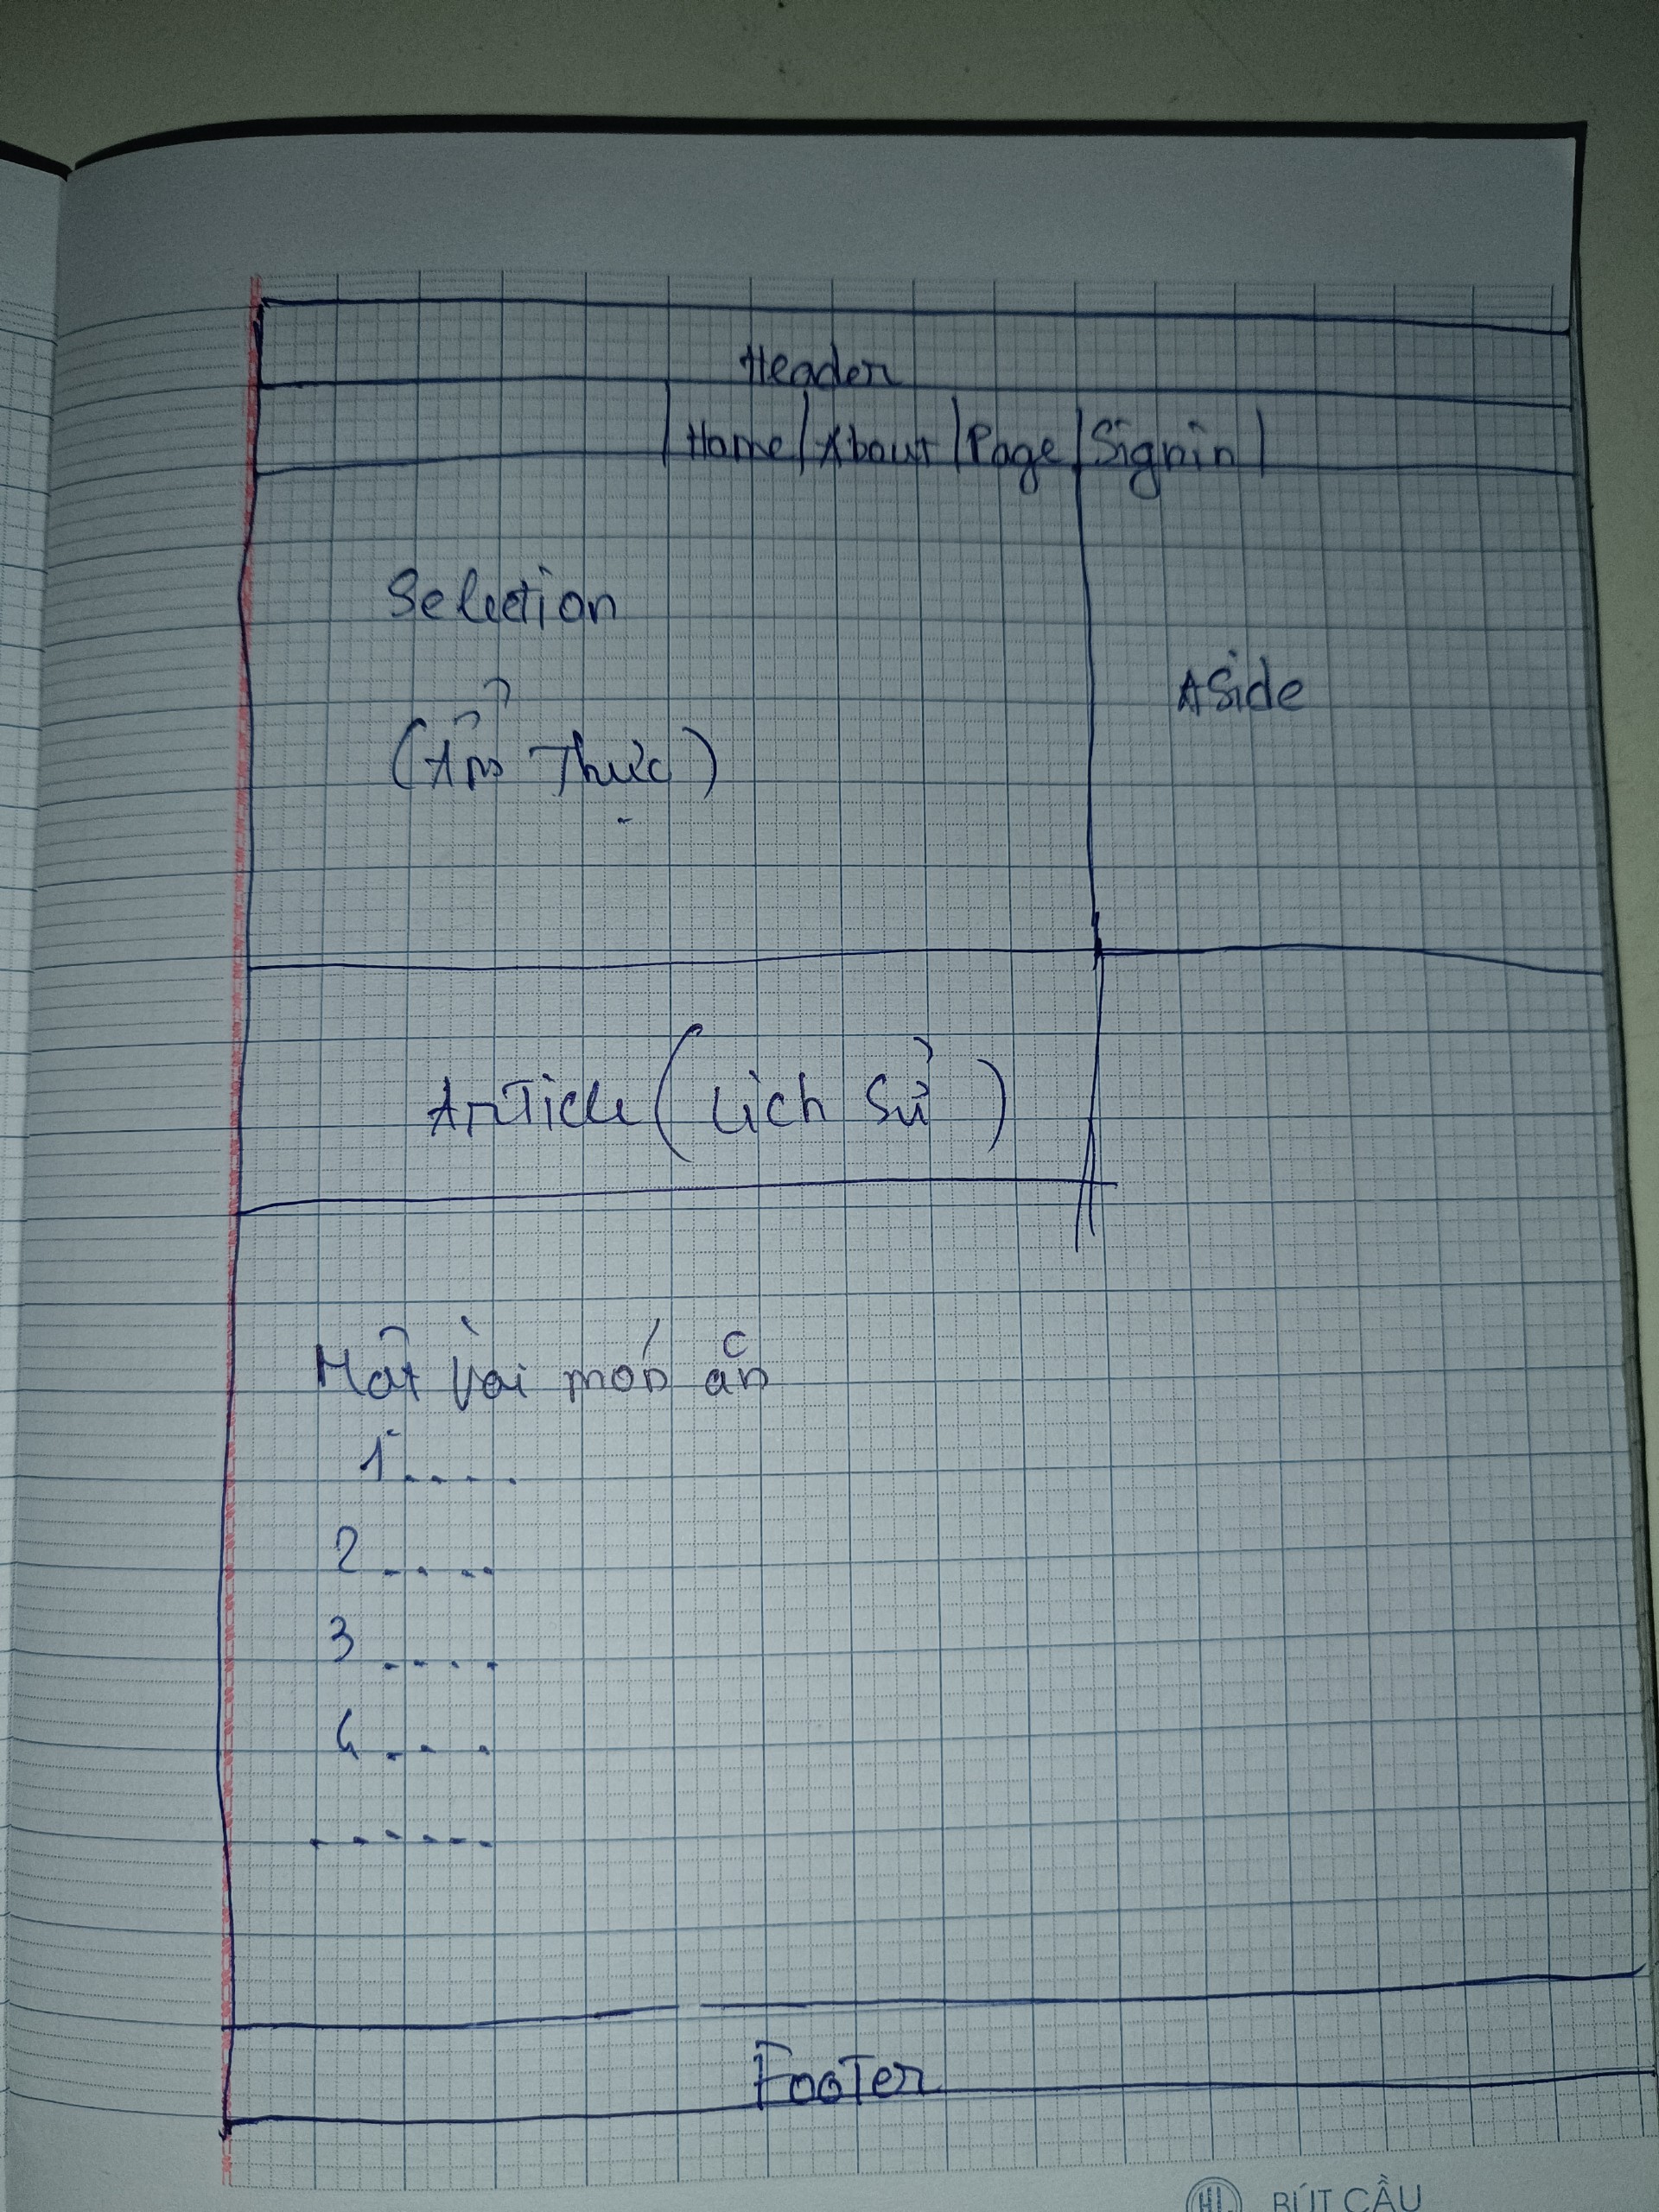 Header
|Home|About|Page|Signin|
Selection
Aside
(Ẩm Thực)
Article (Lịch Sử)
Một vài món ăn
1....
2....
3....
4...
......
Footer
HL BÚT CẦU